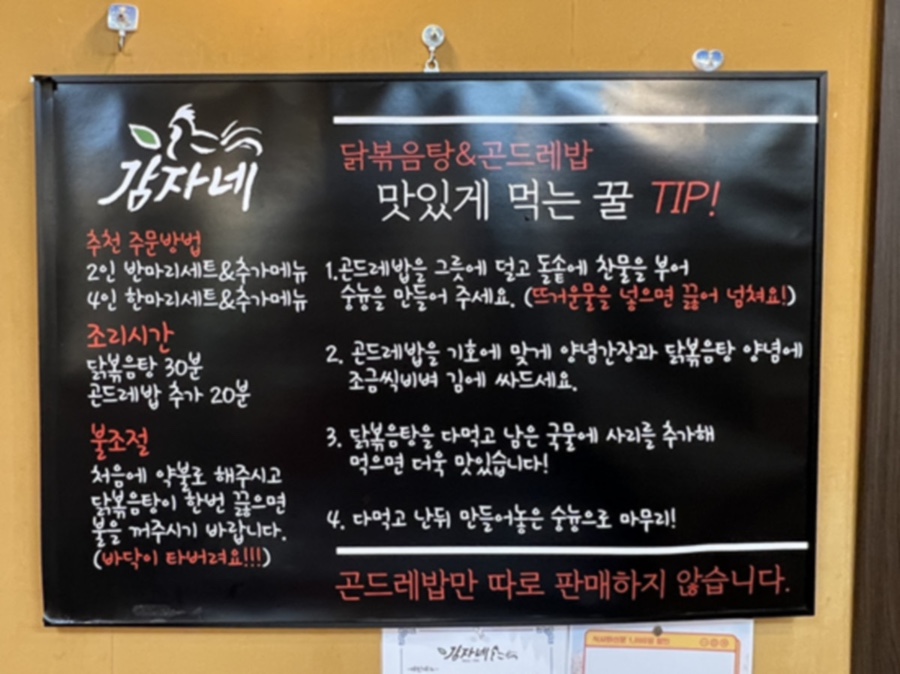 감자네
추천 주문방법
2인 반마리세트&추가메뉴
4인 한마리세트&추가메뉴
조리시간
닭볶음탕 30분
곤드레밥 추가 20분
불조절
처음에 약불로 해주시고
닭볶음탕이 한번 끓으면
불을 꺼주시기 바랍니다.
(바닥이 타버려요!!!)
닭볶음탕&곤드레밥
맛있게 먹는 꿀 TIP!
1.곤드레밥을 그릇에 덜고 돌솥에 찬물을 부어
숭늉을 만들어 주세요. (뜨거운물을 넣으면 끓어 넘쳐요!)
2. 곤드레밥을 기호에 맞게 양념간장과 닭볶음탕 양념에
조금씩비벼 김에 싸드세요.
3. 닭볶음탕을 다먹고 남은 국물에 사리를 추가해
먹으면 더욱 맛있습니다!
4. 다먹고 난뒤 만들어놓은 숭늉으로 마무리!
곤드레밥만 따로 판매하지 않습니다.
감자네